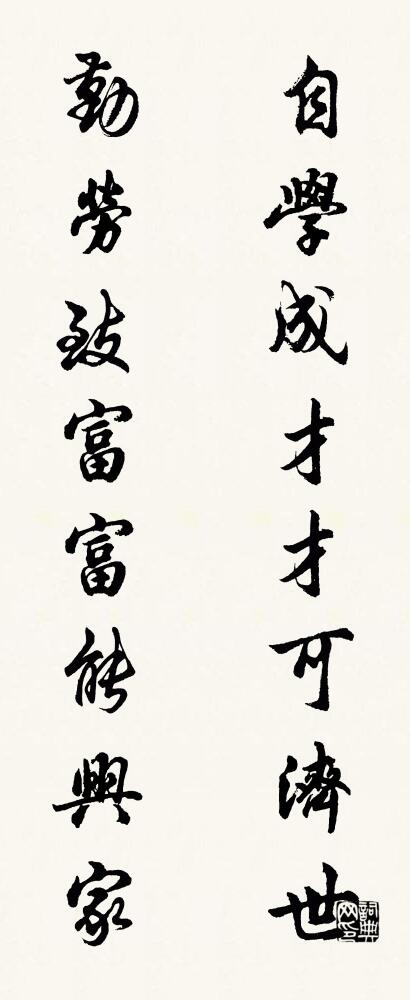 自學成才才可濟世
勤勞致富富能興家
詞典網印